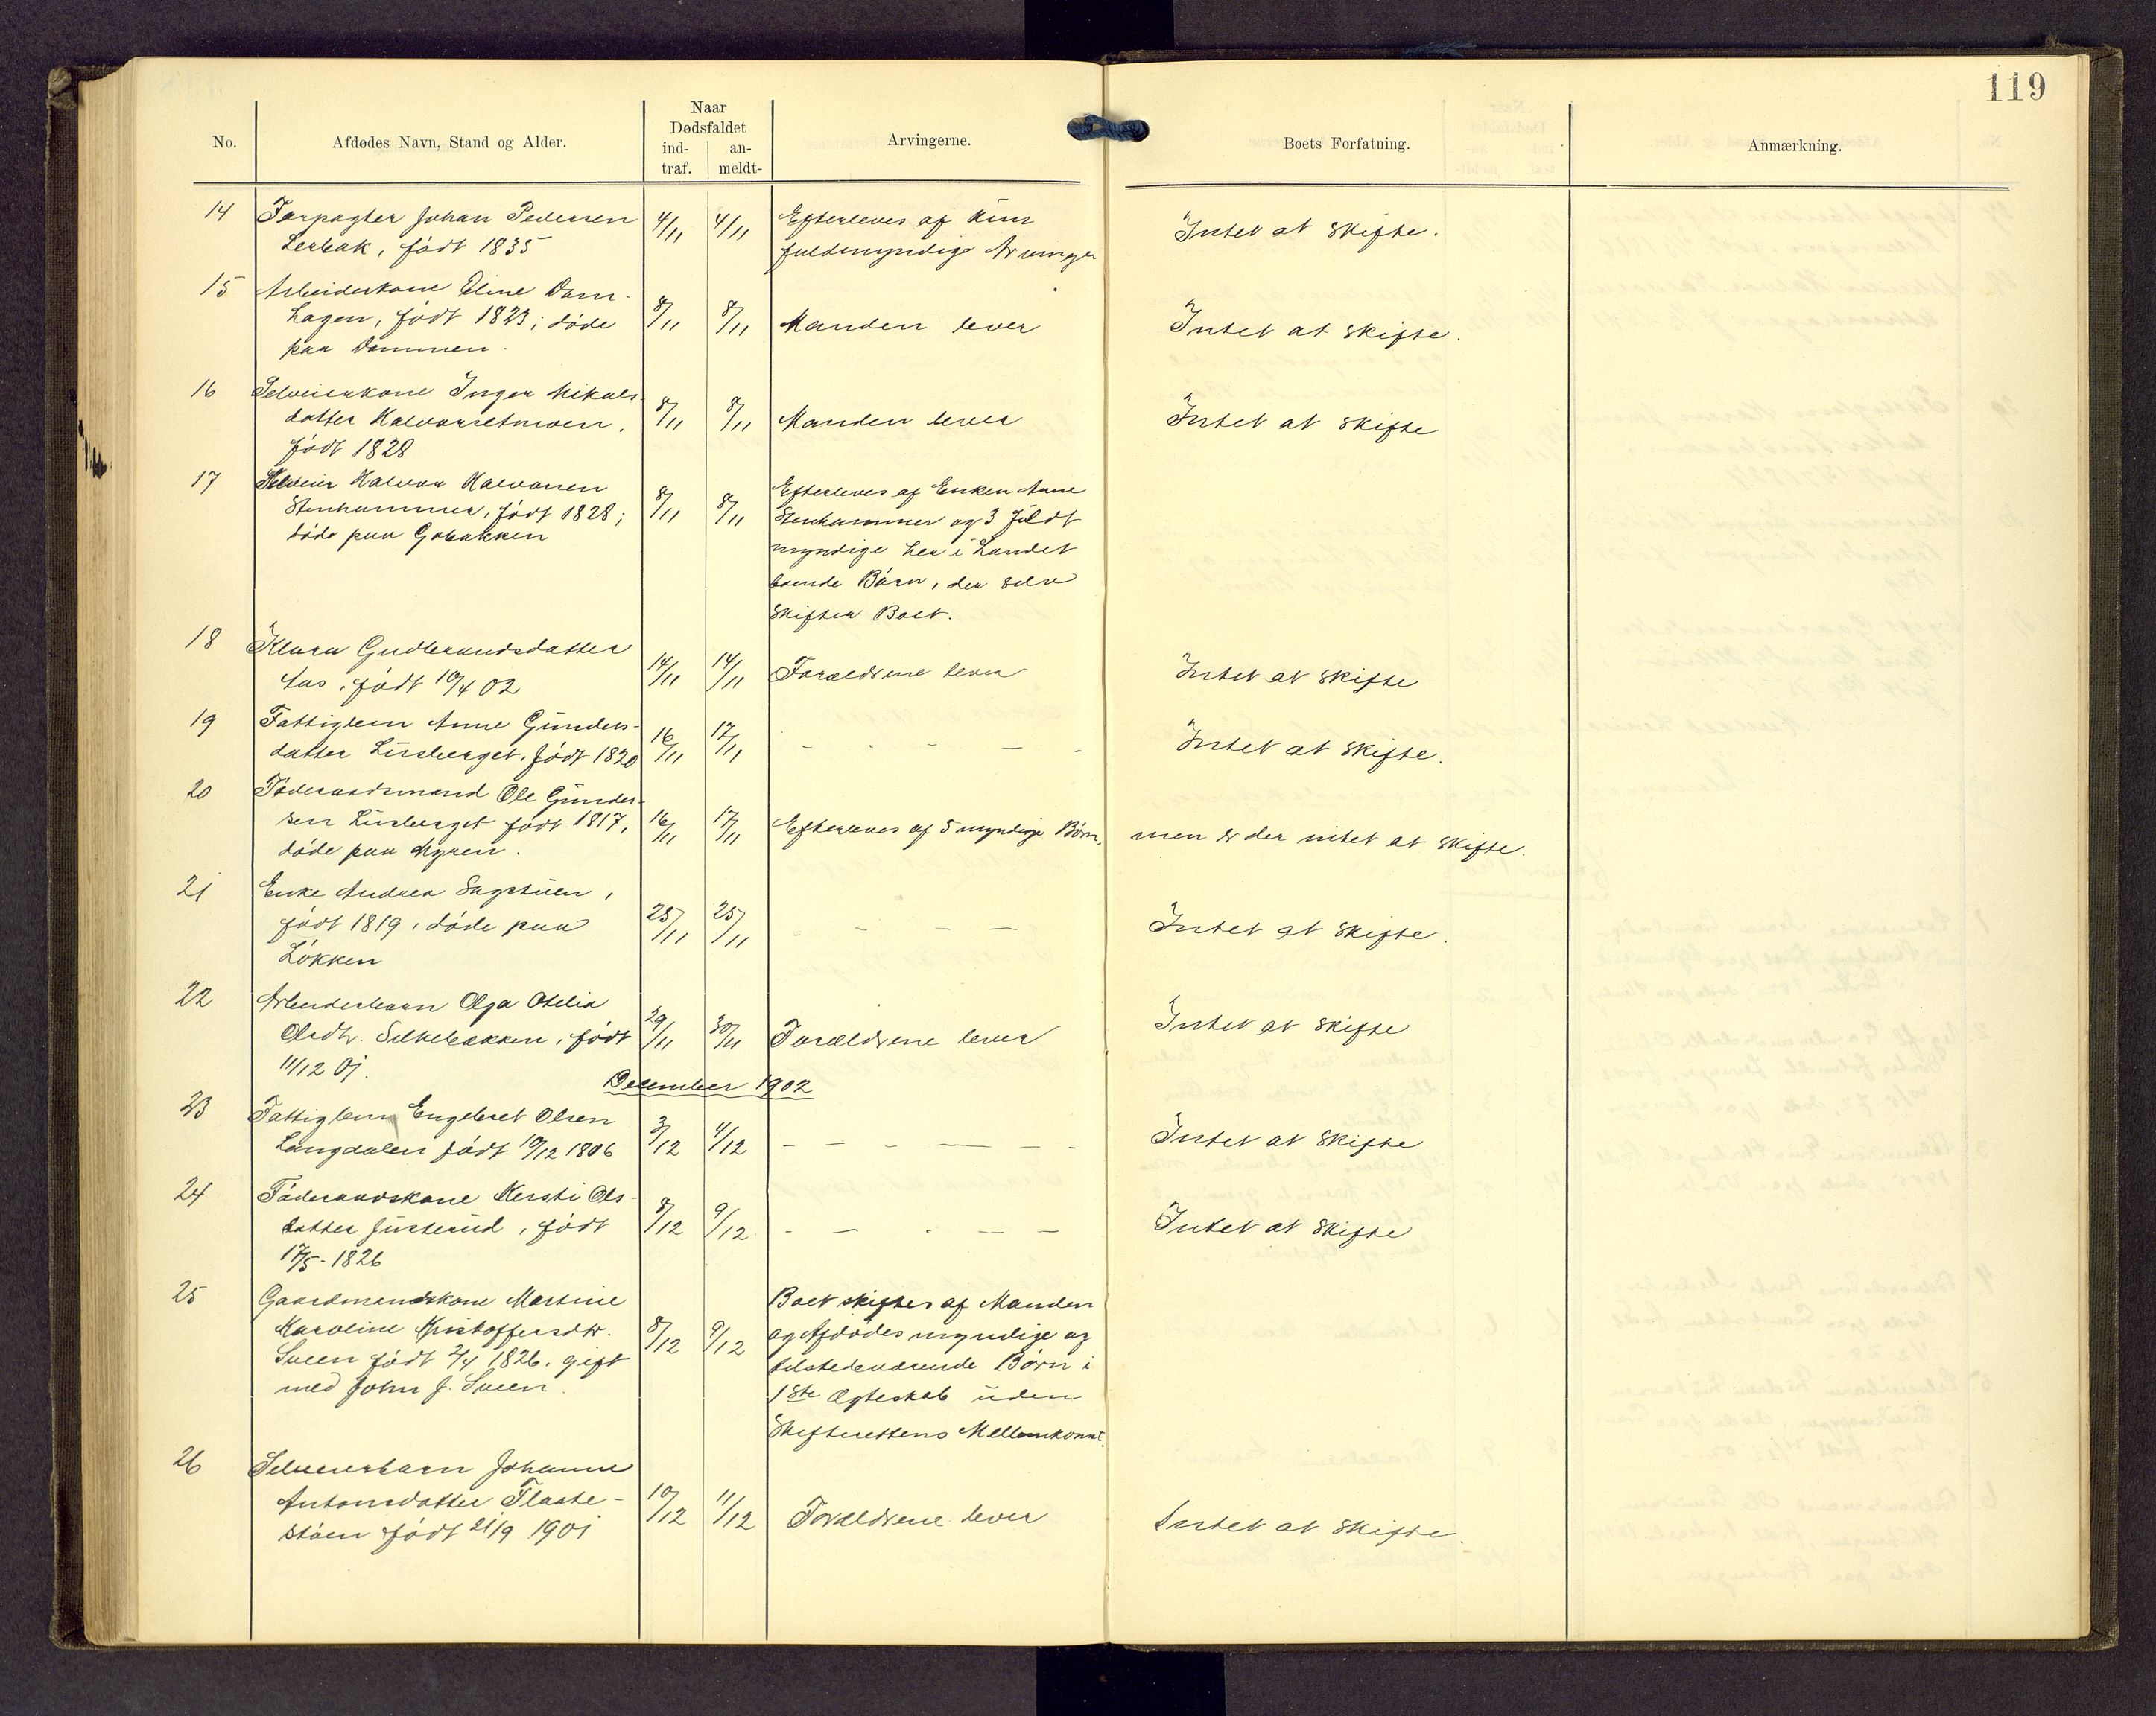 119
No.
Afdødes Navn, Stand og Alder.
Naar
Dødsfaldet
ind-
traf.
an-
meldt-
Arvingerne.
Boets Forfatning.
Anmærkning.
14 Forpagter Johan Pedersen 4/11 4/11 Efterleves af kun Intet at skifte.
Lerbak, født 1835 fuldmyndige Arvinger
15 Arbeiderkone Eline Dam-
hagen, født 1823; døde 8/11 8/11 Manden lever Intet at skifte.
paa Dammen.
16 Selveierkone Inger Mikals-
datter Halvorsetmoen, 8/11 8/11 Manden lever Intet at skifte
født 1828
17 Selveier Halvor Halvorsen Efterleves af Enken Anne
Stenhammer, født 1828; 8/11 8/11 Stenhammer og 3 fuldt
døde paa Gobakken myndige her i Landet
boende Børn, der selv
skifter Boet.
18 Klara Gudbrandsdatter
Aas, født 10/4 02 14/11 14/11 Forældrene lever Intet at skifte
19 Fattiglem Anne Gunders-
datter Lusberget, født 1820 16/11 17/11 - - - - - Intet at skifte.
20 Føderaadsmand Ole Gunder-
sen Lusberget født 1817, 16/11 17/11 Efterleves af 5 myndige Børn, men er der intet at skifte.
døde paa Myren.
21 Enke Andrea Sagstuen,
født 1819, døde paa 25/11 25/11 - - - - Intet at skifte.
Løkken
22 Arbeiderbarn Olga Otilia
Olsdtr. Silkebakken, født 29/11 30/11 Forældrene lever Intet at skifte
11/12 01.
December 1902
23 Fattiglem Engebret Olsen
Langdalen født 10/12 1806 3/12 4/12 - - - - - - Intet at skifte
24 Føderaadskone Kersti Ols-
datter Justerud, født 8/12 9/12 - - - - - Intet at skifte
17/5 - 1826
25 Gaardmandskone Martine Boet skiftes af Manden
Karoline Kristoffersdtr. 8/12 9/12 og Afdødes myndige og
Sveen født 2/4 1826. gift tilstedeværende Børn i
med John J. Sveen. 1ste Ægteskab uden
Skifterettens Mellemkomst.
26 Selveierbarn Johanne
Antonsdatter Flaate- 10/12 11/12 Forældrene lever Intet at skifte.
støen født 21/9 1901